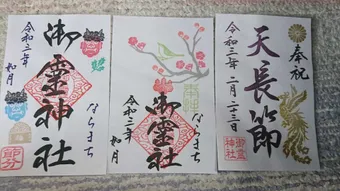 奉祝
天長節
令和三年二月二十三日
御霊神社
御靈神社
ならまち
令和三年
如月
ならまち
御靈神社
令和三年
如月
節分